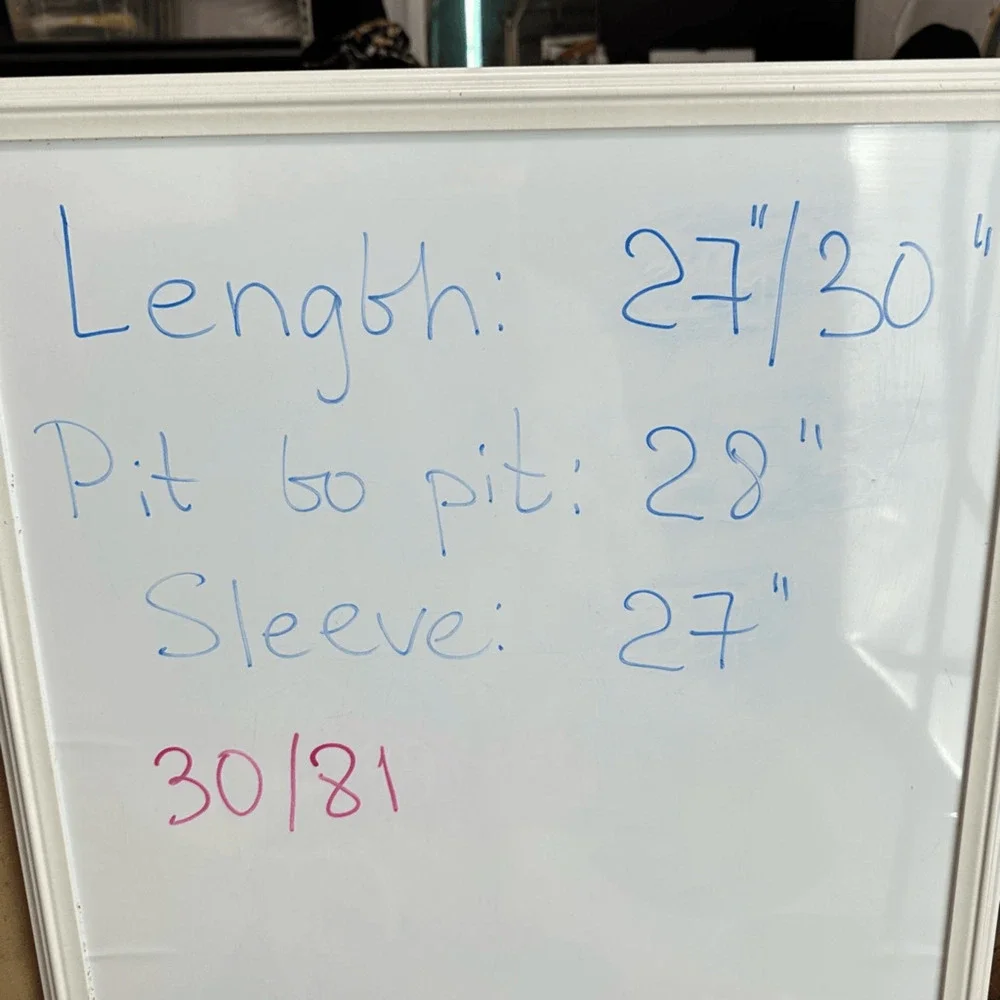 Length: 27"/30"
Pit to pit: 28"
Sleeve: 27"
30/81